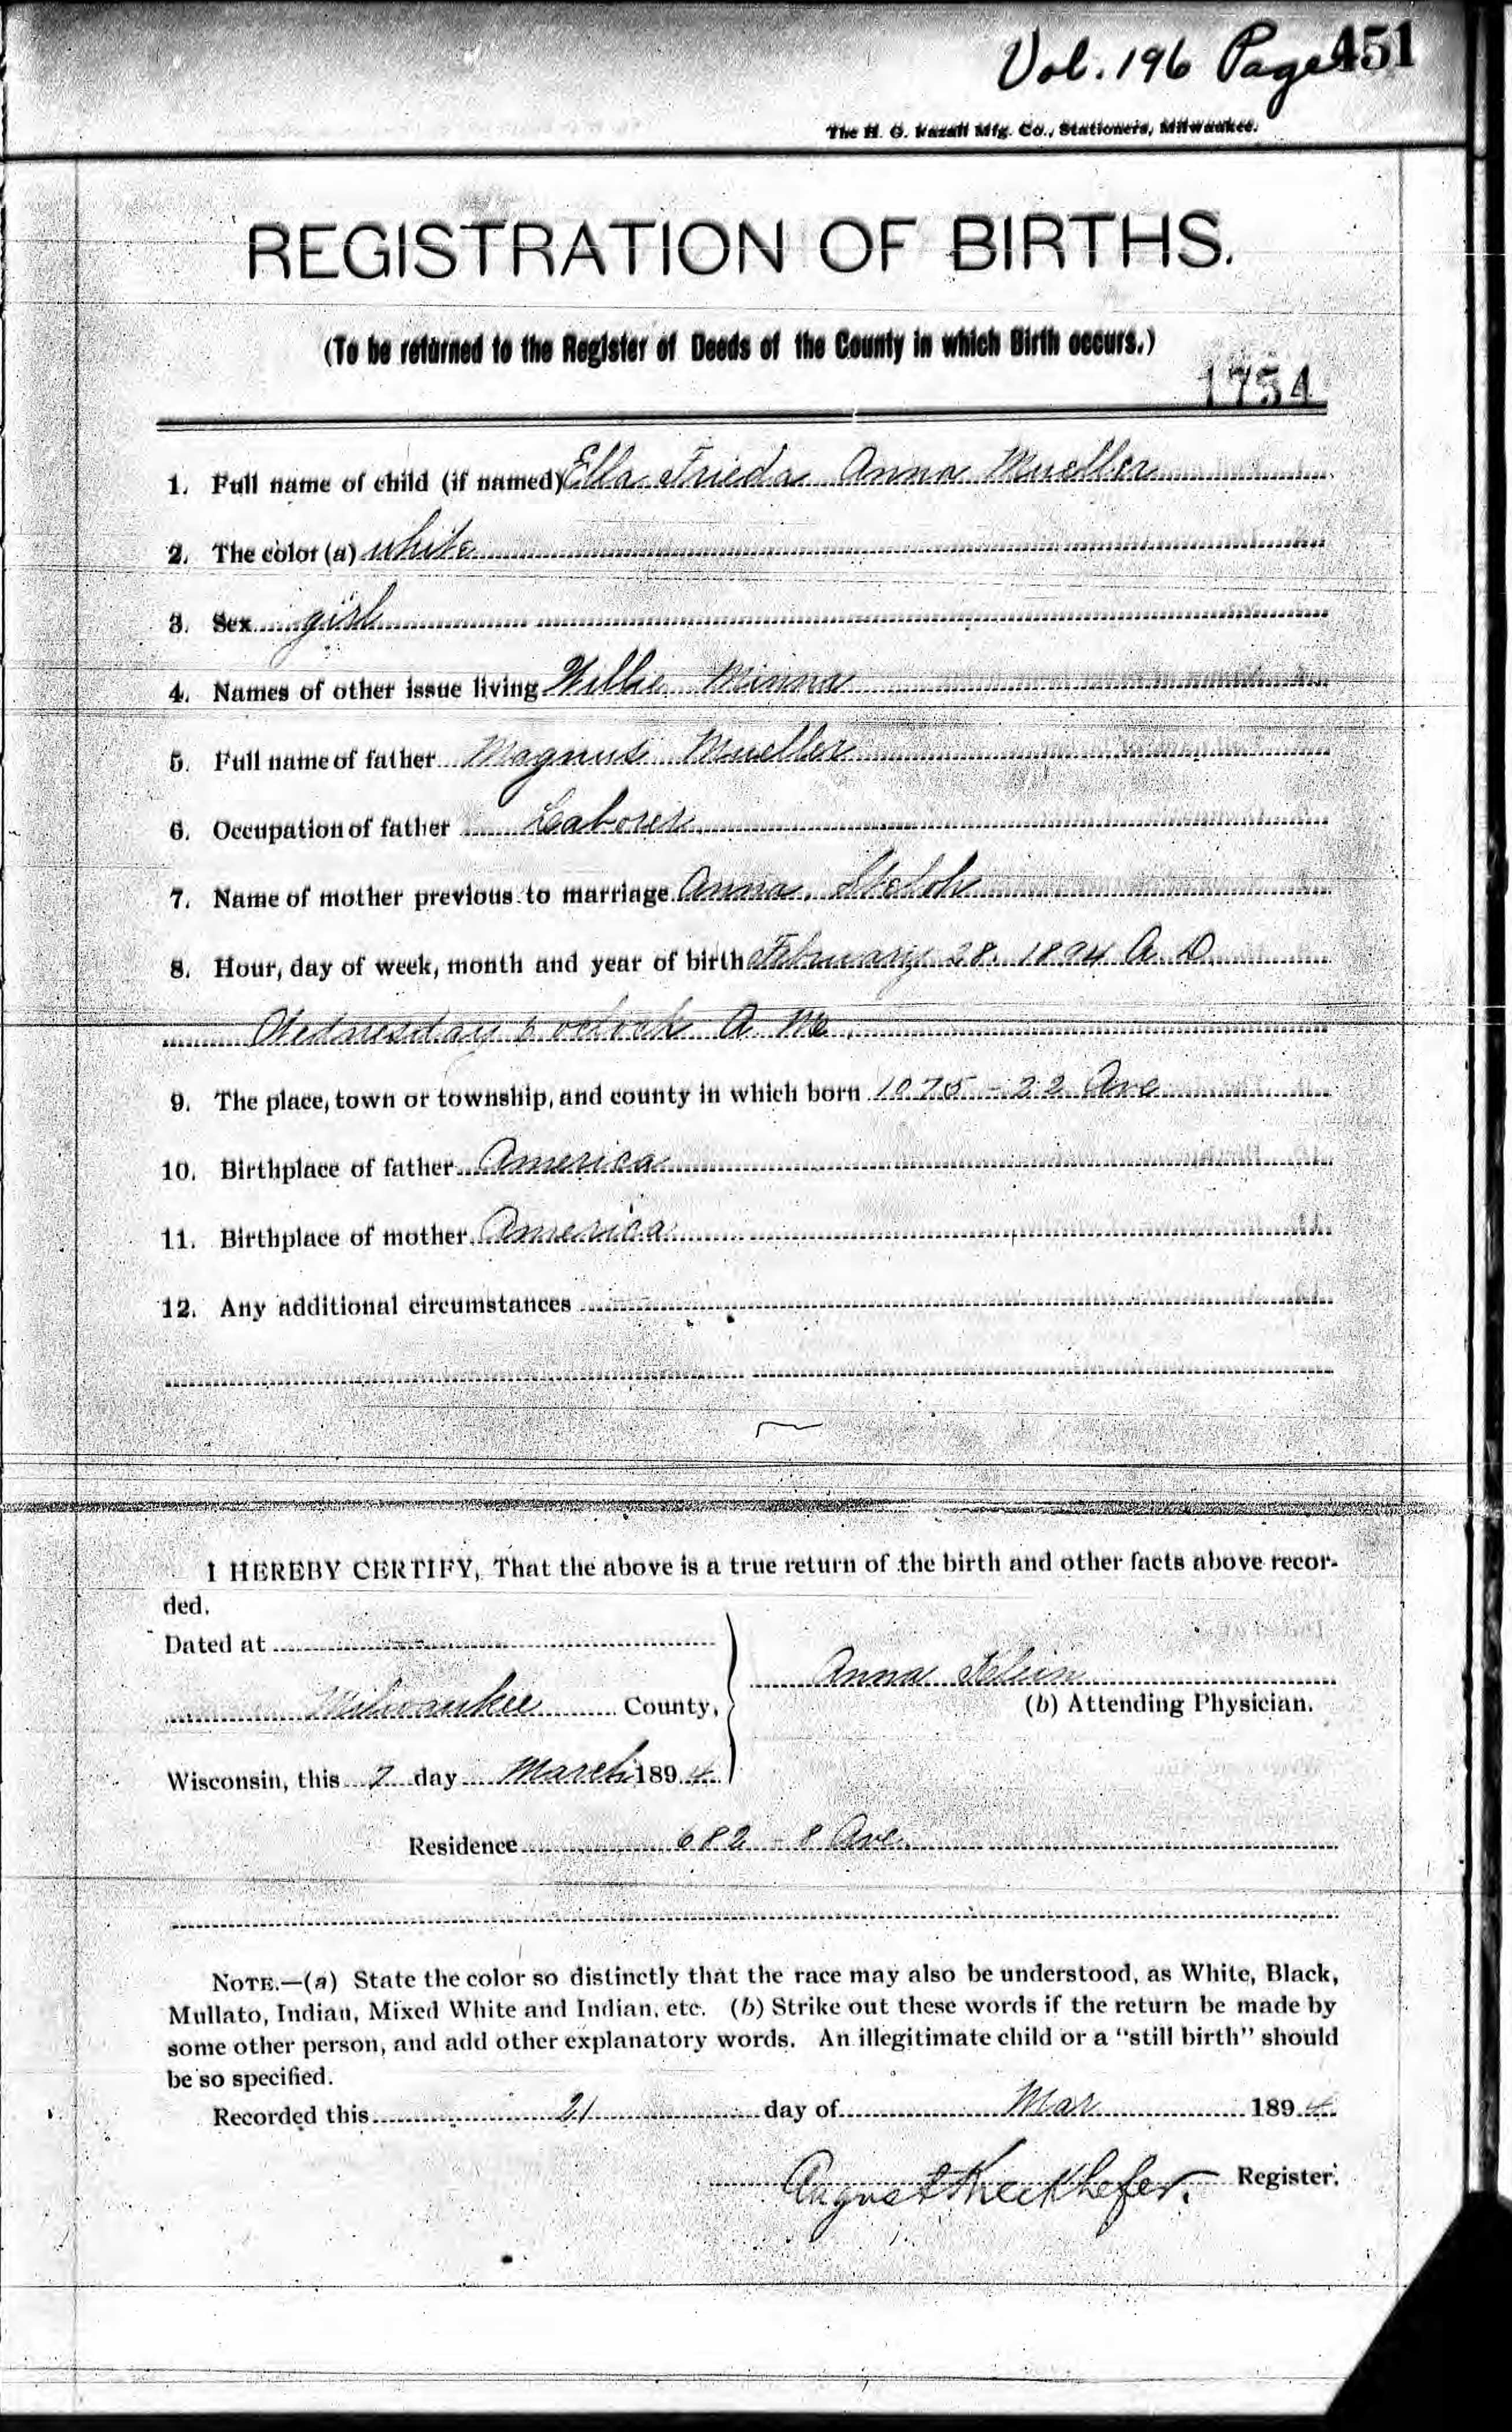 Vol. 196 Page 451
The H. G. Razall Mfg. Co., Stationers, Milwaukee.
REGISTRATION OF BIRTHS.
(To be returned to the Register of Deeds of the County in which Birth occurs.)
1754
1. Full name of child (if named) Ella Frieda Anna Mueller
2. The color (a) white
3. Sex girl
4. Names of other issue living Willie Minna
5. Full name of father Magnus Mueller
6. Occupation of father Laborer
7. Name of mother previous to marriage Anna
8. Hour, day of week, month and year of birth February 28. 1894 A. D.
Wednesday 6 oclock A. M.
9. The place, town or township, and county in which born 1075 - 22 Ave
10. Birthplace of father America
11. Birthplace of mother America
12. Any additional circumstances
I HEREBY CERTIFY, That the above is a true return of the birth and other facts above recor-
ded.
Dated at
Anna Klein
Milwaukee County,
(b) Attending Physician.
Wisconsin, this 7 day March 1894
Residence 682 - 8 Ave.
NOTE.—(a) State the color so distinctly that the race may also be understood, as White, Black,
Mullato, Indian, Mixed White and Indian, etc. (b) Strike out these words if the return be made by
some other person, and add other explanatory words. An illegitimate child or a "still birth" should
be so specified.
Recorded this 21 day of Mar 1894
August Kieckhefer. Register.